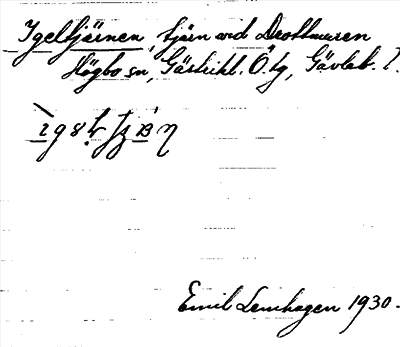 Igeltjärnen, tjärn vid Drottmuren
Högbo sn, Gästrikl. Ö. tg, Gävleb. l.
Emil Lenhagen 1930.